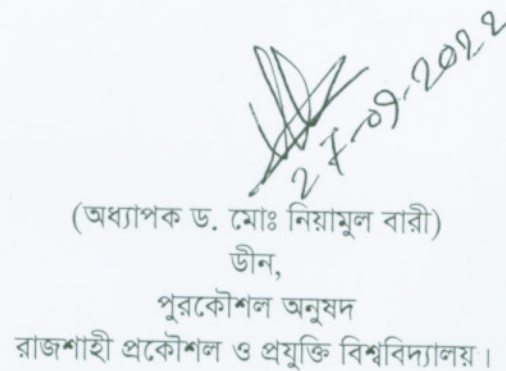 27-09-2022
(অধ্যাপক ড. মোঃ নিয়ামুল বারী)
ডীন,
পুরকৌশল অনুষদ
রাজশাহী প্রকৌশল ও প্রযুক্তি বিশ্ববিদ্যালয়।